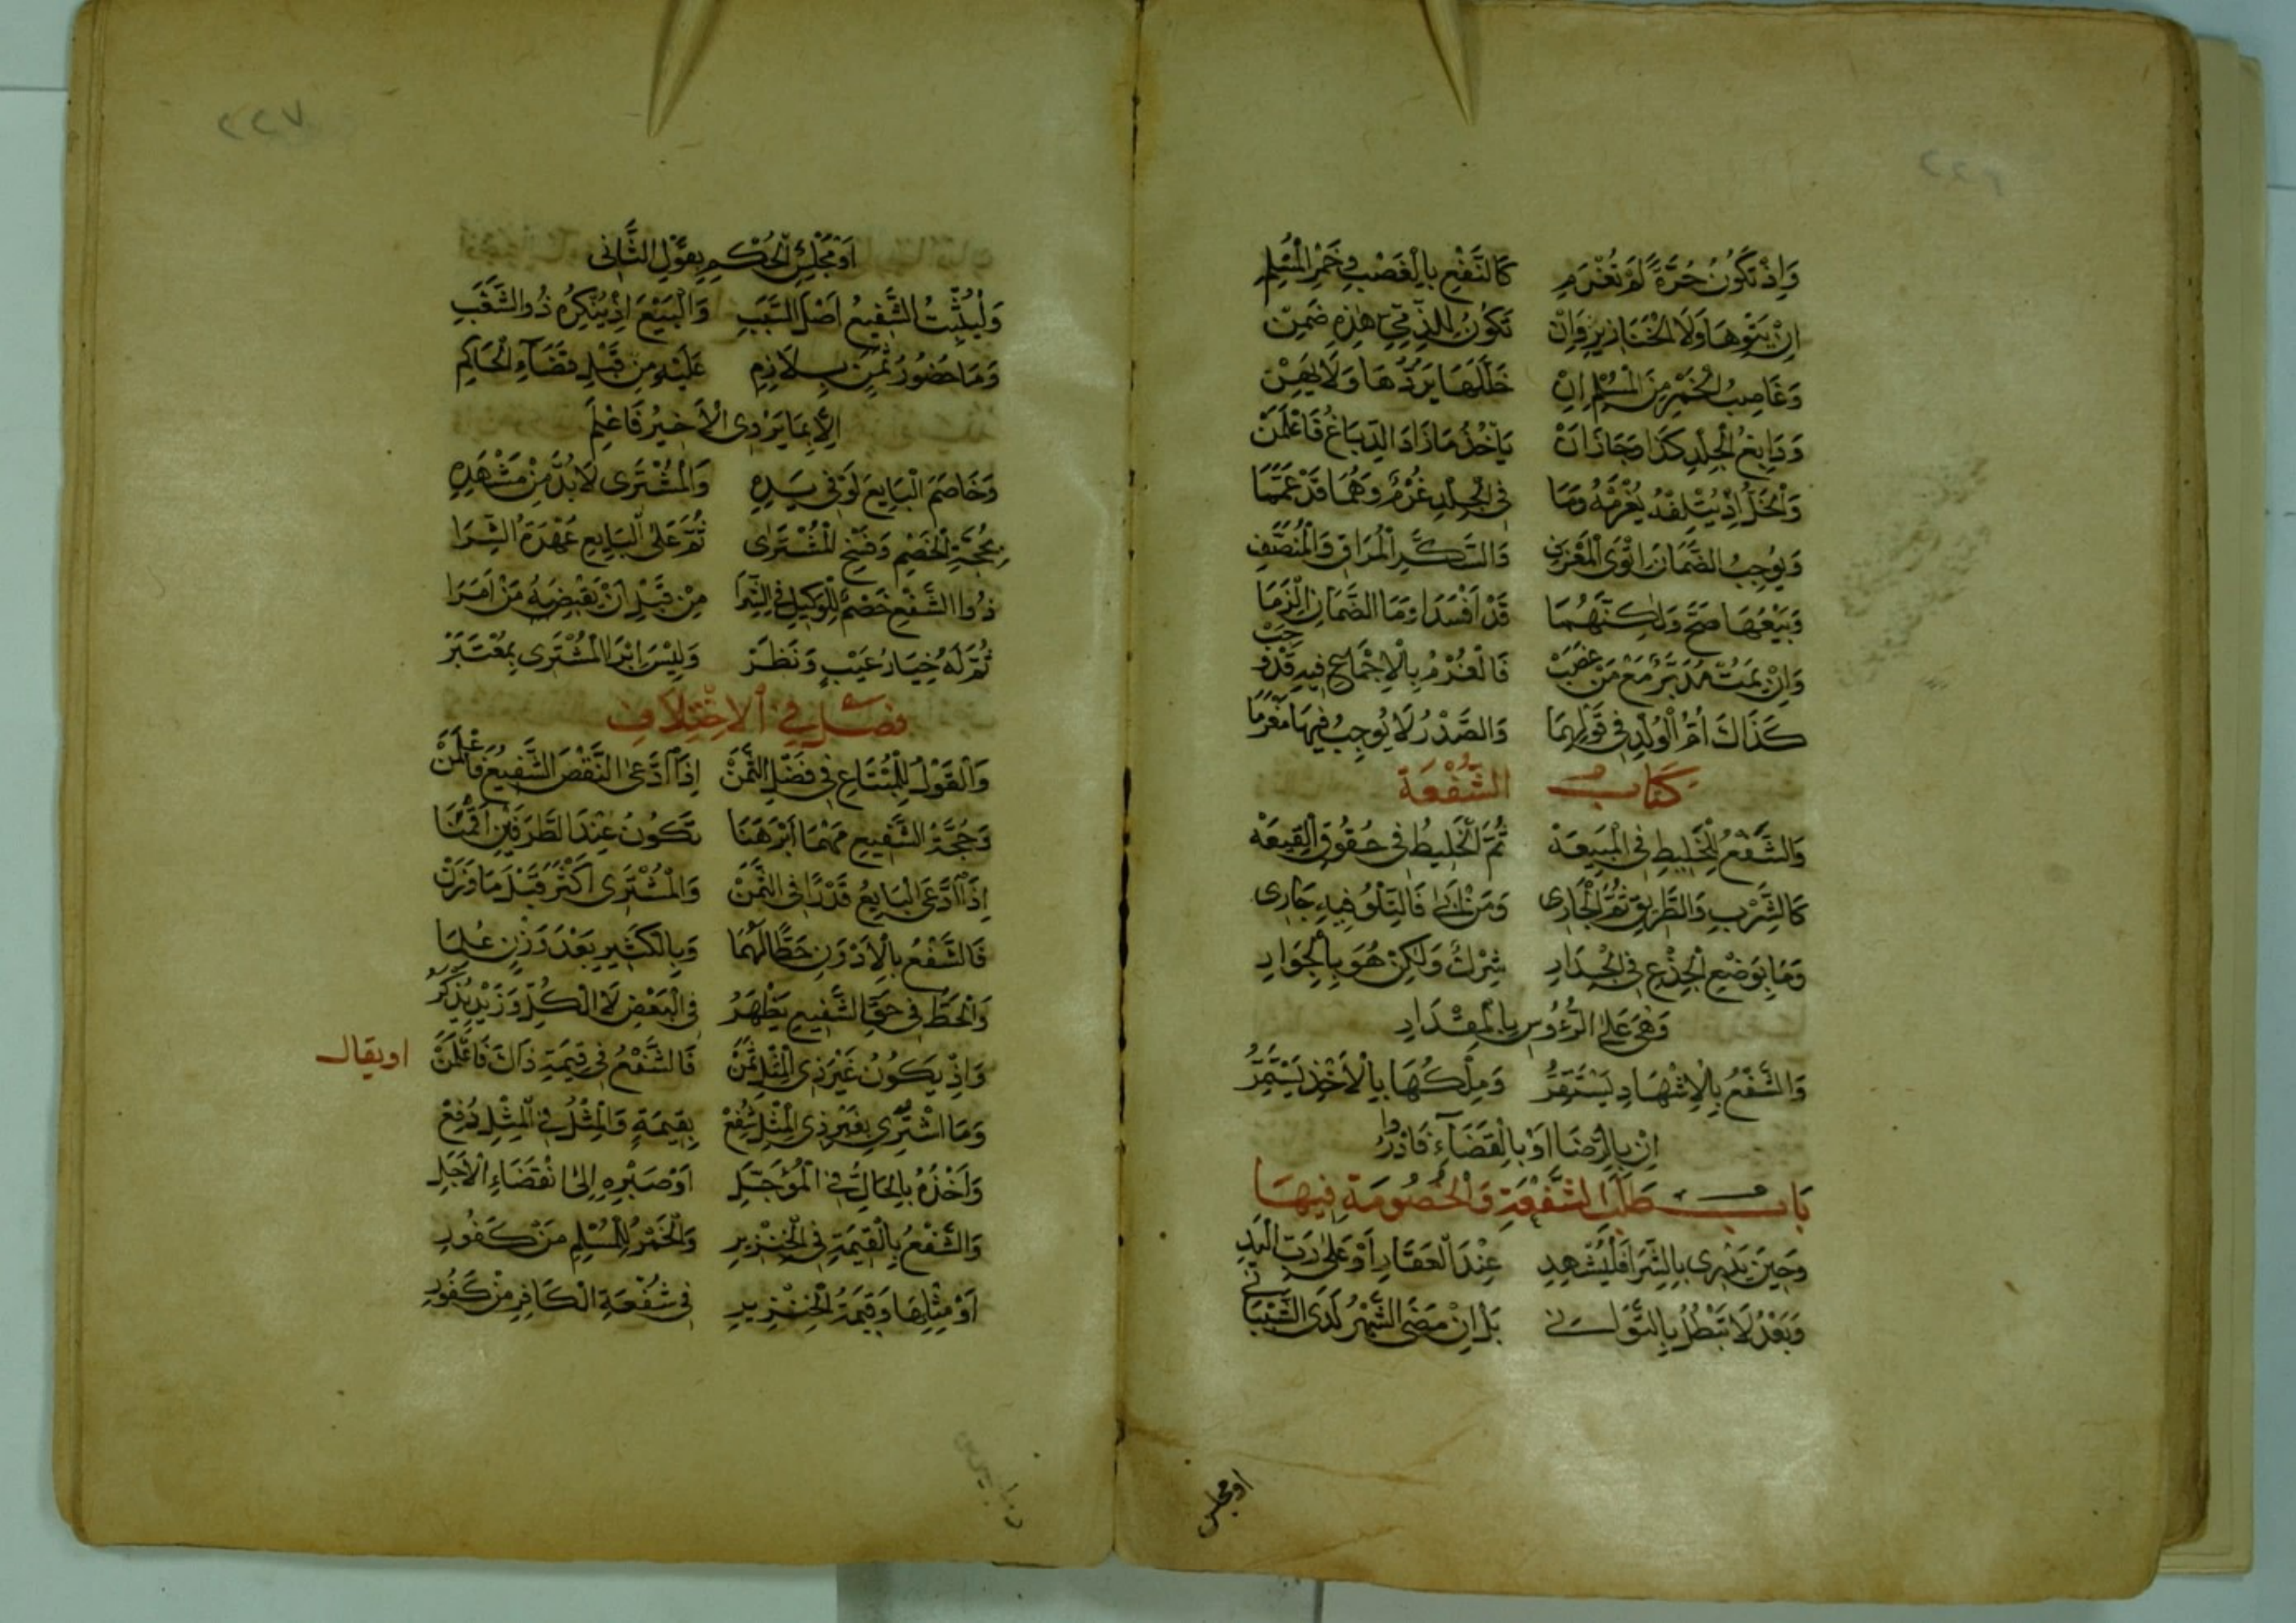 وَاِذْ تَكُونُ حُرَّةً لَمْ تُغْرَمِ كَالنَّفْعِ بِالْغَصْبِ وَخَمْرِ الْمُسْلِمِ
اِنْ يُتْوِهَا وَلَا الْخَنَازِيْرِ وَاِنْ تَكُوْنُ لِلذِّمِّيِّ هٰذِهِ ضَمِنْ
وَغَاصِبُ الْخَمْرِ مِنَ الْمُسْلِمِ اِنْ خَلَّلَهَا يَرُدُّهَا وَلَا يَهِنْ
وَدَابِغُ الْجِلْدِ كَذَا وَجَازَ اَنْ يَاْخُذَ مَا زَادَ الدِّبَاغُ فَاعْلَمَنْ
وَالْخَلُّ اِذْ يُتْلِفُهُ يُغْرَمُهُ وَمَا فِى الْجِلْدِ غُرْمٌ وَهُمَا قَدْ عَمَّمَا
وَيُوجِبُ الضَّمَانَ اِتْوَى الْمِعْزَفِ وَالسَّكَرِ الْمُرَاقِ وَالْمُنَصَّفِ
وَبَيْعُهَا صَحَّ وَلٰكِنَّهُمَا قَدْ اَفْسَدَا وَمَا الضَّمَانَ اَلْزَمَا
وَاِنْ يَمُتْ مُدَبَّرٌ مَعْ مَنْ غَصَبْ فَالْغُرْمُ بِالْاِجْمَاعِ فِيهِ قَدْ وَجَبْ
كَذَاكَ اُمُّ الْوُلْدِ فِى قَوْلِهِمَا وَالصَّدْرُ لَا يُوجِبُ فِيهَا مَغْرَمًا
كتاب الشُّفْعَة
وَالشَّفْعُ لِلْخَلِيطِ فِى الْمَبِيعَهْ ثُمَّ الْخَلِيطُ فِى حُقُوقِ الْقِيعَهْ
كَالشِّرْبِ وَالطَّرِيقِ ثُمَّ الْجَارِى وَمَنْ اَبٰى فَالتِّلْوُ فِيهِ جَارِى
وَمَا بِوَضْعِ الْجِذْعِ فِى الْجِدَارِ شِرْكٌ وَلٰكِنْ هُوَ بِالْجِوَارِ
وَهْىَ عَلَى الرُّءُوسِ بِالْمِقْدَارِ
وَالشَّفْعُ بِالْاِشْهَادِ يَسْتَقِرُّ وَمِلْكُهَا بِالْاَخْذِ يَسْتَمِرُّ
اِنْ بِالرِّضَا اَوْ بِالْقَضَاءِ فَادْرُوا
بَاب طَلَبِ الشُّفْعَةِ وَالْخُصُومَةِ فِيهَا
وَحِينَ يَدْرِى بِالشِّرَا فَلْيُشْهِدِ عِنْدَ الْعَقَارِ اَوْ عَلٰى رَبِّ الْيَدِ
وَبَعْدُ لَا تَبْطُلُ بِالتَّوَانِى بَلْ اِنْ مَضَى الشَّهْرُ لَدَى الشَّيْبَانِى
او مجلس
٢٢٧
اَوْ مَجْلِسُ الْحُكْمِ بِقَوْلِ الثَّانِى
وَلْيُثْبِتِ الشَّفِيعُ اَصْلَ السَّبَبِ وَالْبَيْعَ اِذْ يُنْكِرُهُ ذُو الشَّغَبِ
وَمَا حُضُورُ ثَمَنٍ بِلَازِمِ عَلَيْهِ مِنْ قَبْلِ قَضَاءِ الْحَاكِمِ
اِلَّا بِمَا يَرْوِى الْاَخِيرُ فَاعْلَمِ
وَخَاصَمَ الْبَايِعَ لَوْ فِى يَدِهِ وَالْمُشْتَرِى لَا بُدَّ مِنْ مَشْهَدِهِ
بِحُجَّةِ الْخَصْمِ وَفَسْخِ الْمُشْتَرٰى ثُمَّ عَلَى الْبَايِعِ عُهْدَةُ الشِّرَا
ذُوا الشَّفْعِ خَصْمٌ لِلْوَكِيلِ فِى الشِّرَا مِنْ قَبْلِ اَنْ يَقْبِضَهُ مَنْ اَمَرَا
ثُمَّ لَهُ خِيَارُ عَيْبٍ وَنَظَرْ وَلَيْسَ اِبْرَا الْمُشْتَرِى بِمُعْتَبَرْ
فصل فِى الْاِخْتِلَافِ
وَالْقَوْلُ لِلْمُبْتَاعِ فِى فَضْلِ الثَّمَنْ اِذَا ادَّعَى النَّقْصَ الشَّفِيعُ فَاعْلَمَنْ
وَحُجَّةُ الشَّفِيعِ مَهْمَا اَبْرَهَنَا تَكُونُ عِنْدَ الطَّرَفَيْنِ اَقْمَنَا
اِذَا ادَّعَى الْبَايِعُ قَدْرًا فِى الثَّمَنْ وَالْمُشْتَرِى اَكْثَرَ قَبْلَ مَا وَزَنْ
فَالشَّفْعُ بِالْاَدْوَنِ حَطًّا لَهُمَا وَبِالْكَثِيرِ بَعْدَ وَزْنٍ عُلِمَا
وَالْحَطُّ فِى حَقِّ الشَّفِيعِ يَظْهَرُ فِى الْبَعْضِ لَا الْكُلِّ وَزَيْدٌ يُذْكَرُ
وَاِذْ يَكُونُ غَيْرَ ذِى الْمِثْلِ ثَمَنْ فَالشَّفْعُ فِى قِيمَةِ ذَاكَ فَاعْلَمَنْ
او يقال
وَمَا اشْتُرِى بِغَيْرِ ذِى الْمِثْلِ شُفِعْ بِقِيمَةٍ وَالْمِثْلُ فِى الْمِثْلِ دُفِعْ
وَاَخْذُهُ بِالْحَالِّ فِى الْمُؤَجَّلِ اَوْ صَبْرِهِ اِلٰى انْقِضَاءِ الْاَجَلِ
وَالشَّفْعُ بِالْقِيمَةِ فِى الْخِنْزِيرِ وَالْخَمْرُ لِلْمُسْلِمِ مَنْ كَفُورِ
اَوْ مِثْلِهَا وَقِيمَةُ الْخِنْزِيرِ فِى شُفْعَةِ الْكَافِرِ مِنْ كَفُورِ